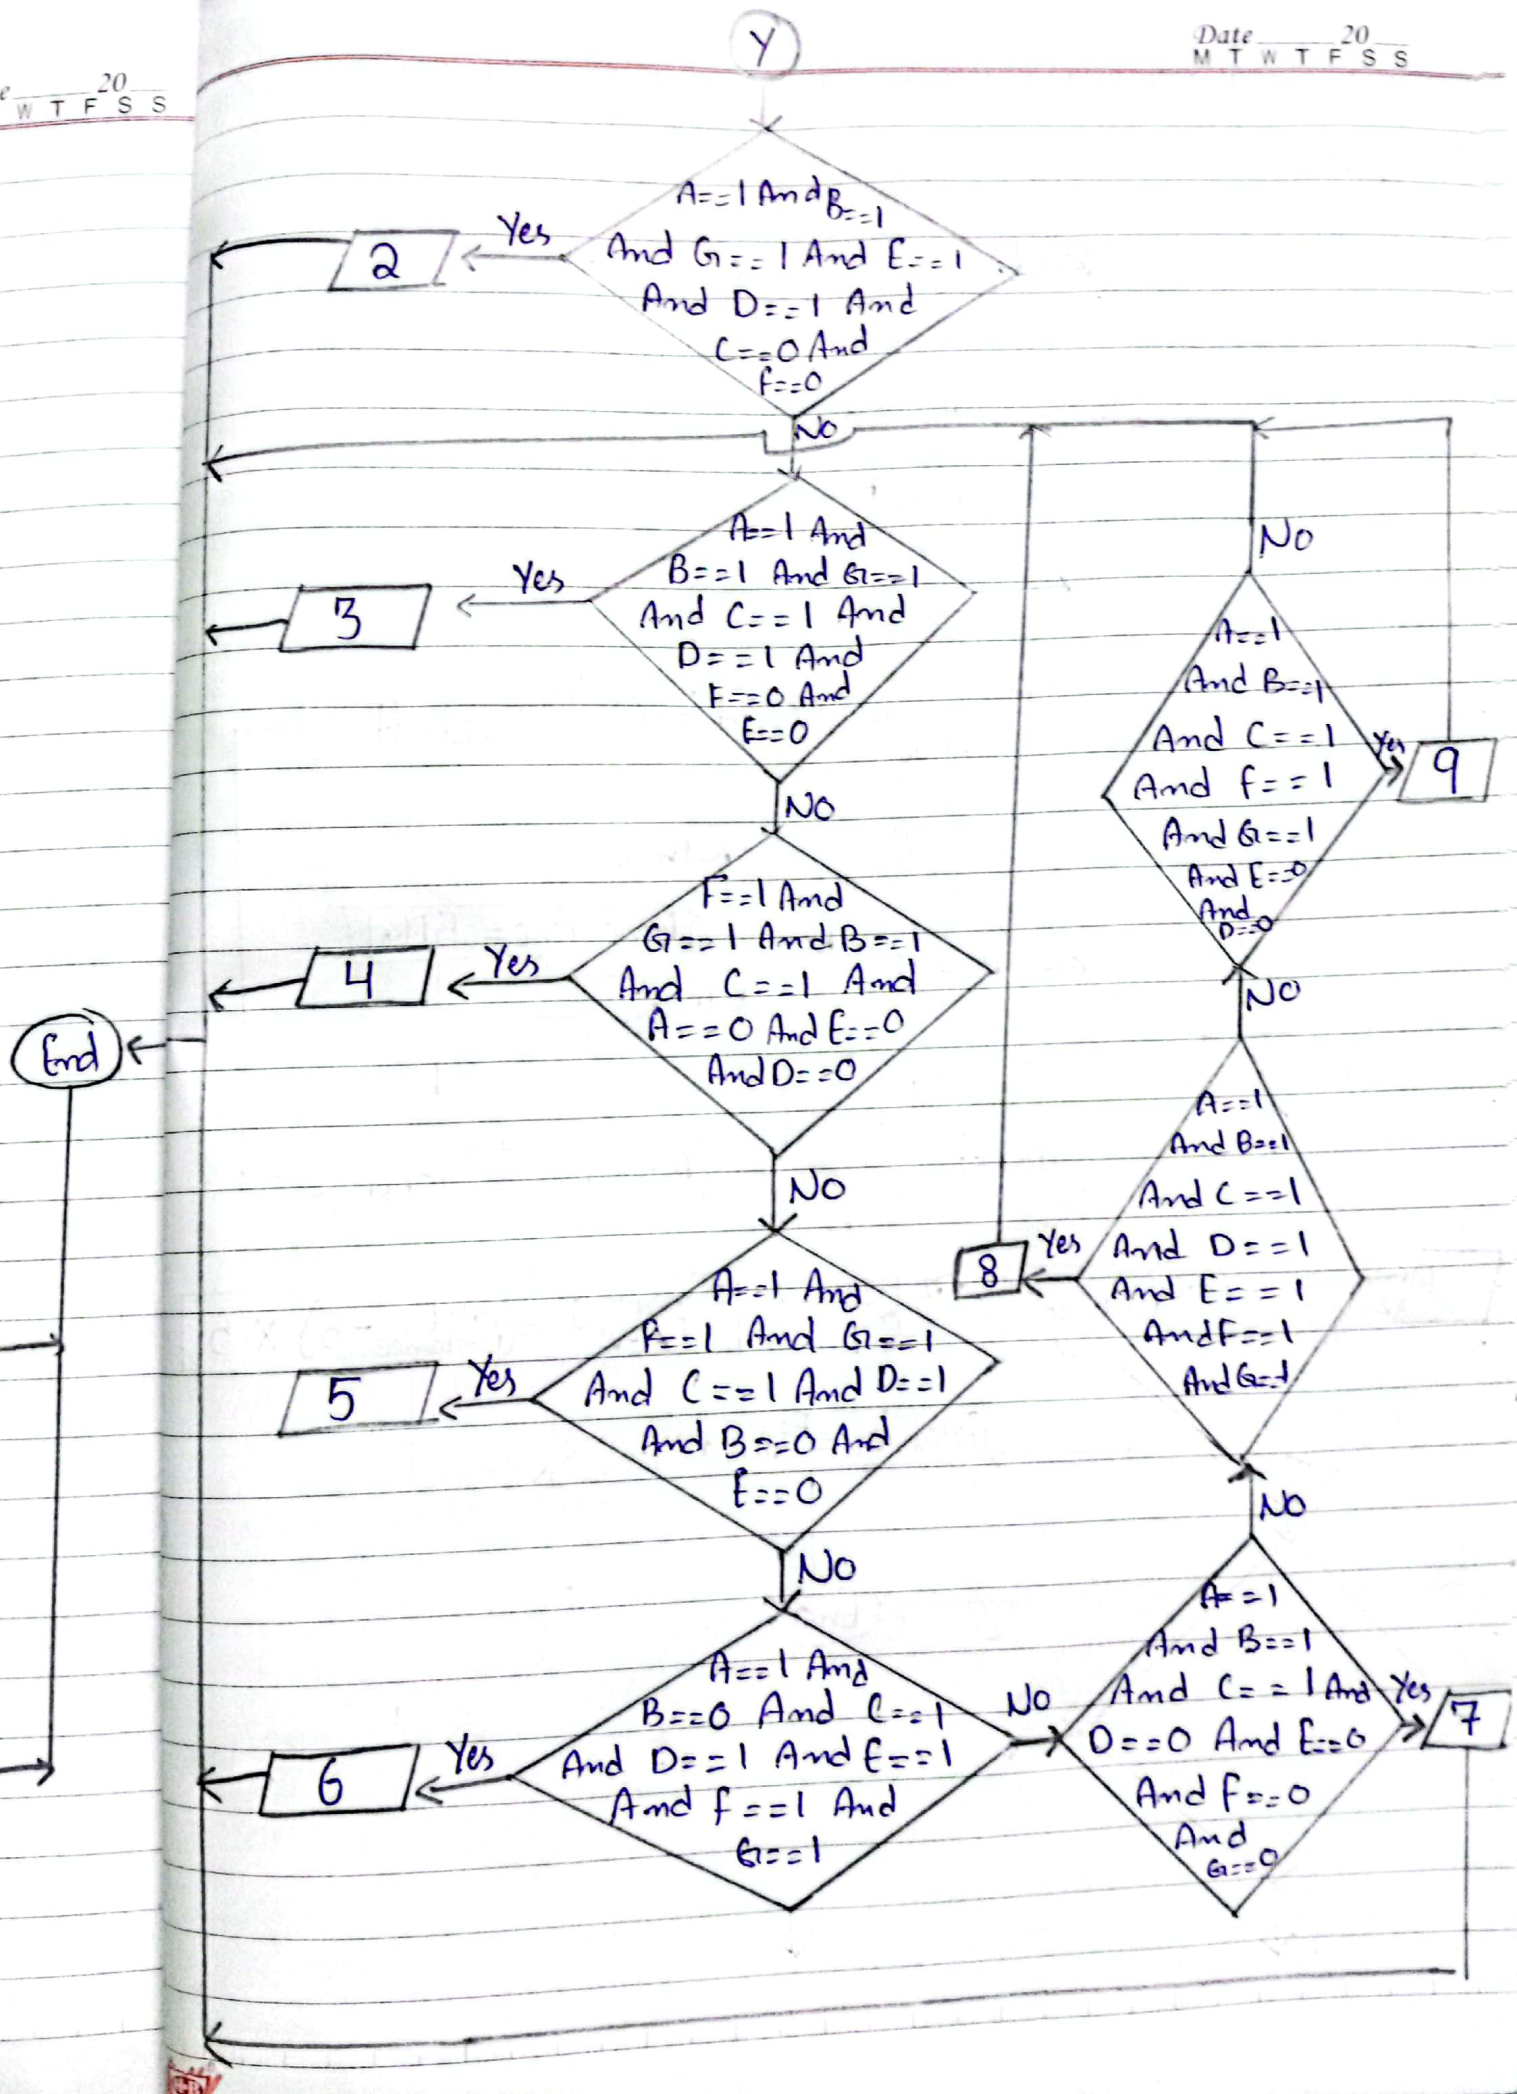 Y
Date 20
M T W T F S S
20
W T F S S
A==1 And B==1
And G==1 And E==1
And D==1 And
C==0 And
F==0
Yes
2
No
A==1 And
B==1 And G==1
And C==1 And
D==1 And
F==0 And
E==0
Yes
3
No
F==1 And
G==1 And B==1
And C==1 And
A==0 And E==0
And D==0
Yes
4
End
No
A==1 And
F==1 And G==1
And C==1 And D==1
And B==0 And
E==0
Yes
5
No
A==1 And
B==0 And C==1
And D==1 And E==1
And F==1 And
G==1
Yes
6
No
A==1
And B==1
And C==1 And
D==0 And E==0
And F==0
And
G==0
Yes
7
No
A==1
And B==1
And C==1
And D==1
And E==1
And F==1
And G==1
Yes
8
No
A==1
And B==1
And C==1
And F==1
And G==1
And E==0
And
D==0
Yes
9
No